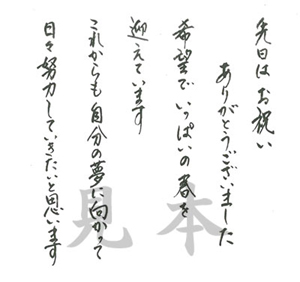 先日はお祝い
ありがとうございました
希望でいっぱいの春を
迎えています
これからも自分の夢に向かって
日々努力していきたいと思います
見本